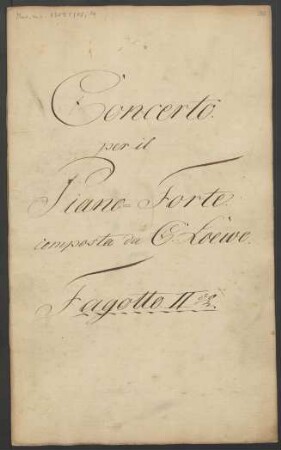 Concerto.
per il
Piano-Forte.
composta da C. Loewe.
Fagotto II